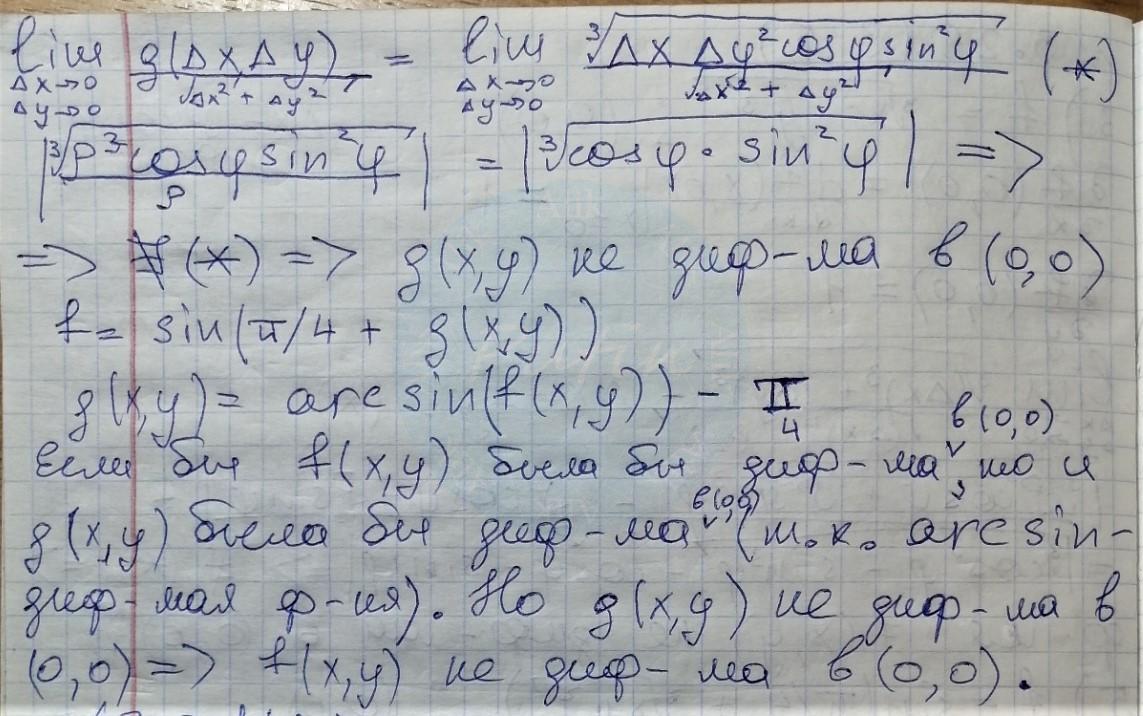 lim Δx→0 Δy→0 g(Δx,Δy) / √Δx² + Δy² = lim Δx→0 Δy→0 ∛Δx Δy² cosφ sin²φ / √Δx² + Δy² (*)
|∛ρ³ cosφ sin²φ / ρ| = |∛cosφ · sin²φ| =>
=> ∄ (*) => g(x,y) не диф-ма в (0,0)
f = sin(π/4 + g(x,y))
g(x,y) = arcsin(f(x,y)) - π/4
Если бы f(x,y) была бы диф-ма в (0,0), то и
g(x,y) была бы диф-ма в (0,0) (т.к. arcsin-
диф-мая ф-ия). Но g(x,y) не диф-ма в
(0,0) => f(x,y) не диф-ма в (0,0).